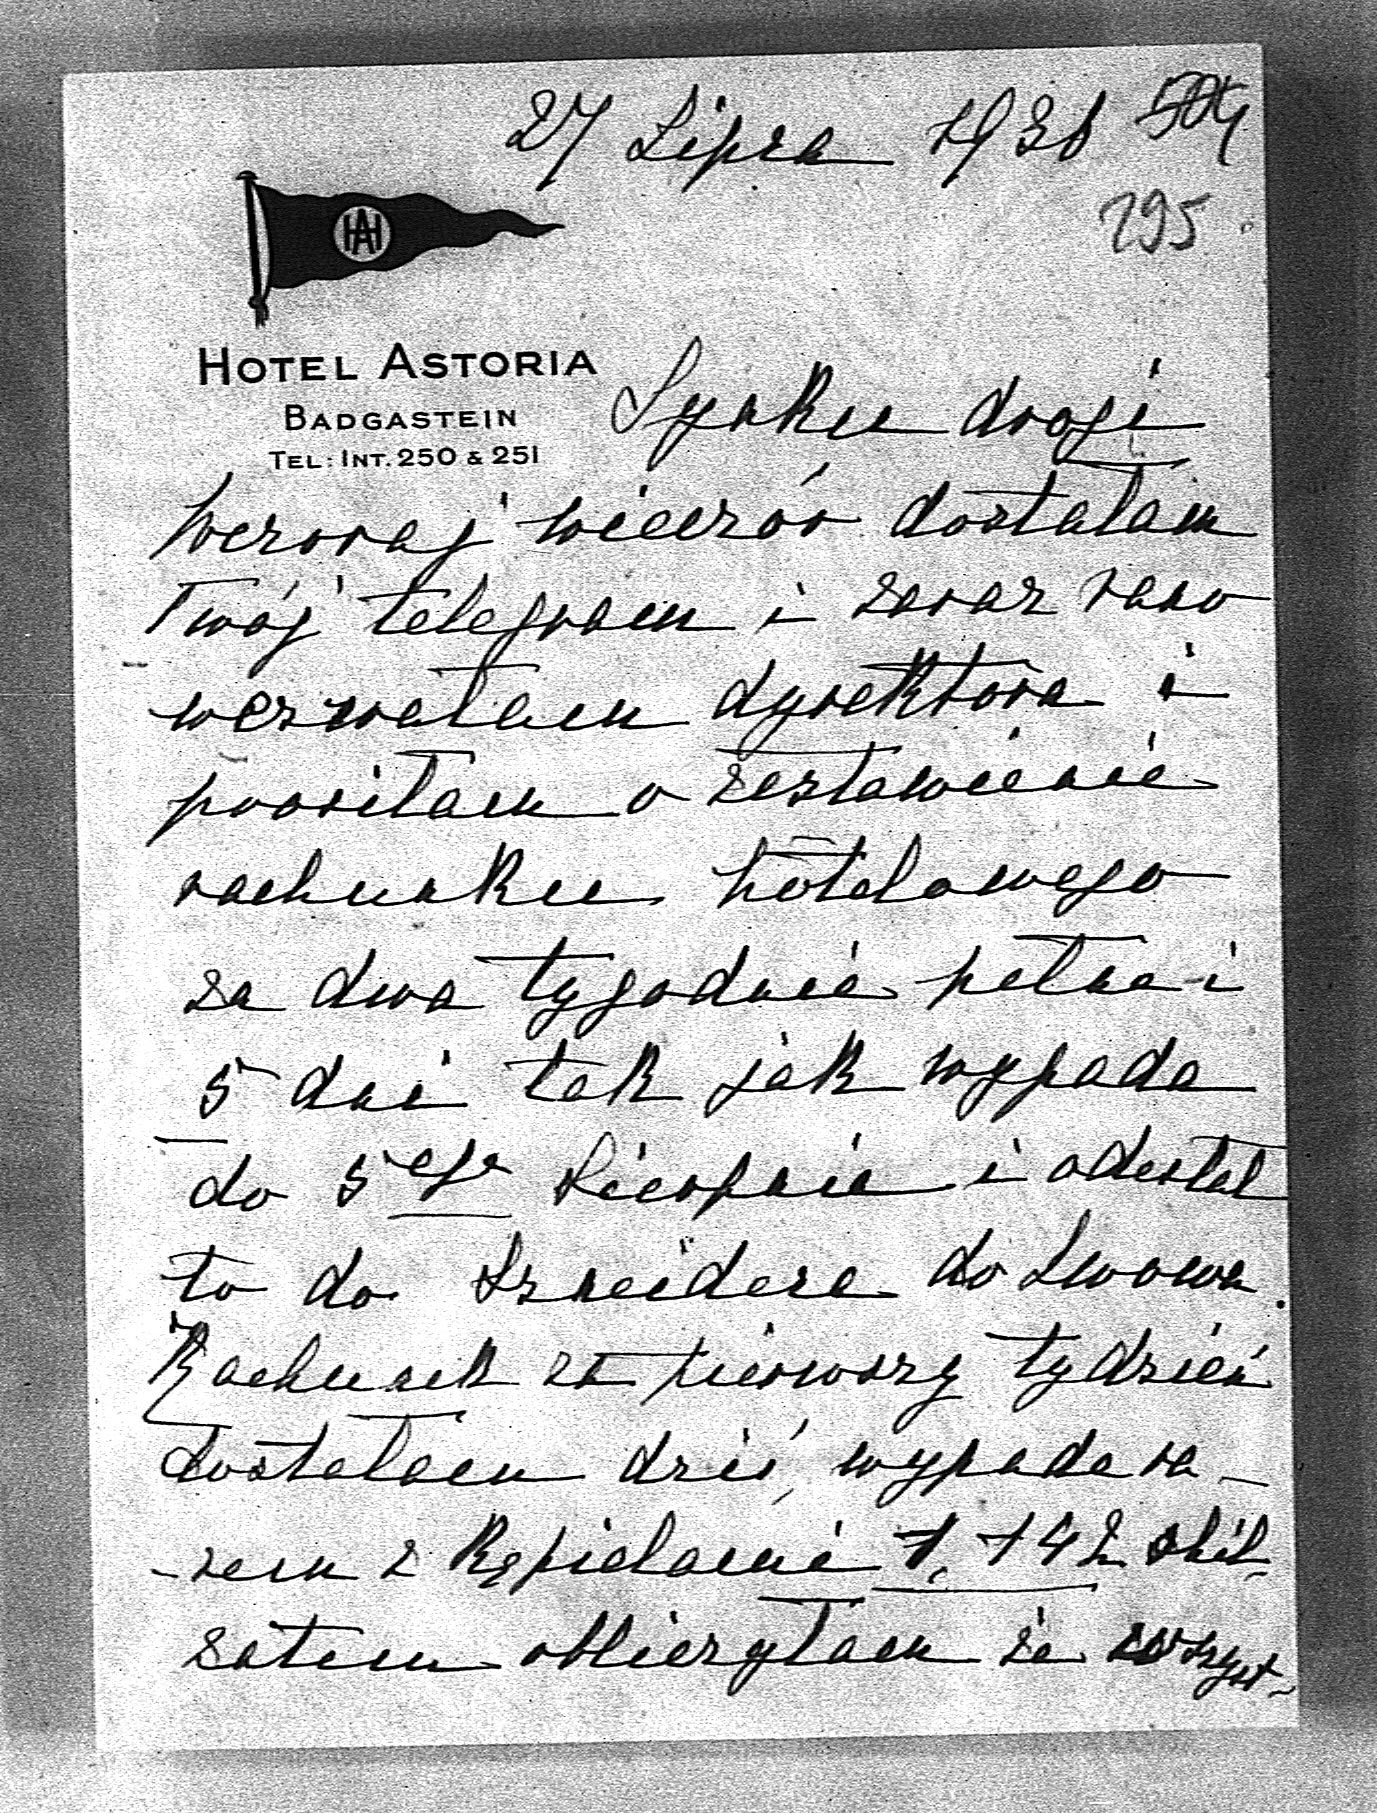 27 Lipca 1938 504
295
HAH
HOTEL ASTORIA
BADGASTEIN
TEL: INT. 250 & 251
Synku drogi
wczoraj wieczór dostałam
Twój telegram i zaraz rano
wezwałam dyrektora i
prosiłam o zestawienie
rachunku hotelowego
za dwa tygodnie pełne i
5 dni tak jak wypada
do 5go Sierpnia i odesłał
to do Szneidera do Lwowa.
Rachunek za pierwszy tydzień
dostałam dziś, wypada ra-
-zem z kąpielami 1.142 shil-
zatem obliczyłam że